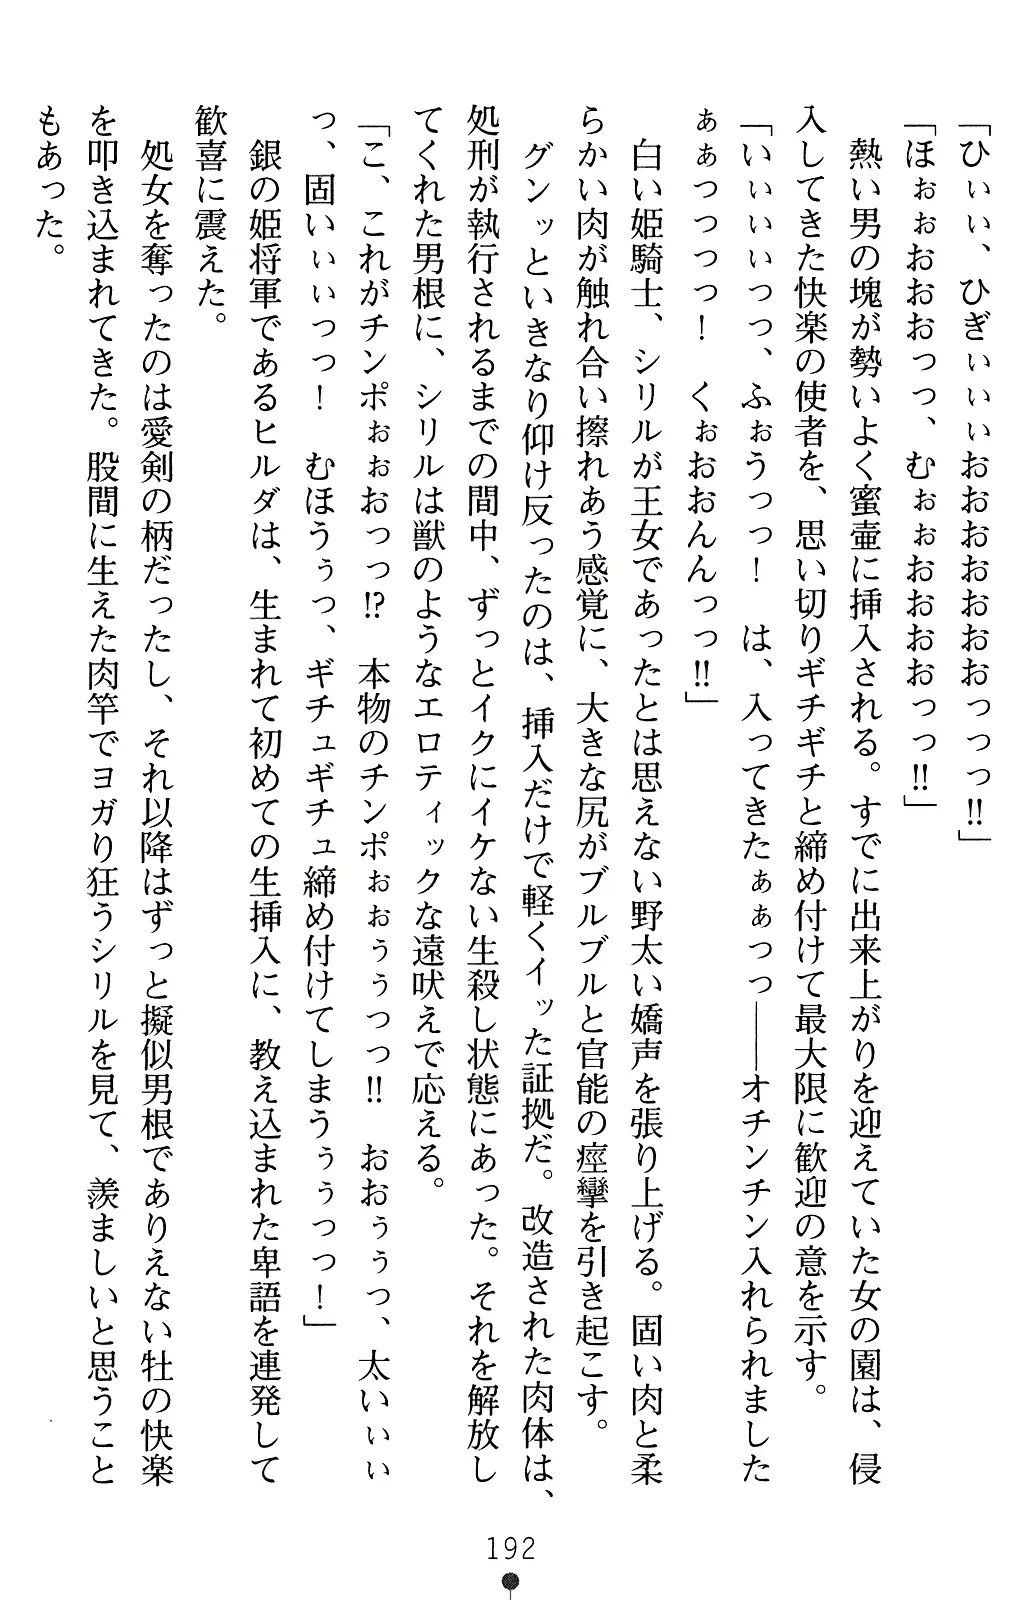 「ひぃぃ、ひぎぃぃぃおおおおおおっっっ‼」
「ほぉぉおおおっっ、むぉぉおおおおっっ‼」
　熱い男の塊が勢いよく蜜壷に挿入される。すでに出来上がりを迎えていた女の園は、侵
入してきた快楽の使者を、思い切りギチギチと締め付けて最大限に歓迎の意を示す。
「いぃぃぃっっ、ふぉうっっ！　は、入ってきたぁぁっっ――オチンチン入れられました
ぁぁっっっっ！　くぉおおんんっっ‼」
　白い姫騎士、シリルが王女であったとは思えない野太い嬌声を張り上げる。固い肉と柔
らかい肉が触れ合い擦れあう感覚に、大きな尻がブルブルと官能の痙攣を引き起こす。
　グンッといきなり仰け反ったのは、挿入だけで軽くイッた証拠だ。改造された肉体は、
処刑が執行されるまでの間中、ずっとイクにイケない生殺し状態にあった。それを解放し
てくれた男根に、シリルは獣のようなエロティックな遠吠えで応える。
「こ、これがチンポぉぉおっっ⁉　本物のチンポぉぉぅぅっっ‼　おおぅぅっ、太いぃぃ
っ、固いぃぃっっ！　むほうぅっ、ギチュギチュ締め付けてしまうぅぅっっ！」
　銀の姫将軍であるヒルダは、生まれて初めての生挿入に、教え込まれた卑語を連発して
歓喜に震えた。
　処女を奪ったのは愛剣の柄だったし、それ以降はずっと擬似男根でありえない牡の快楽
を叩き込まれてきた。股間に生えた肉竿でヨガり狂うシリルを見て、羨ましいと思うこと
もあった。
192